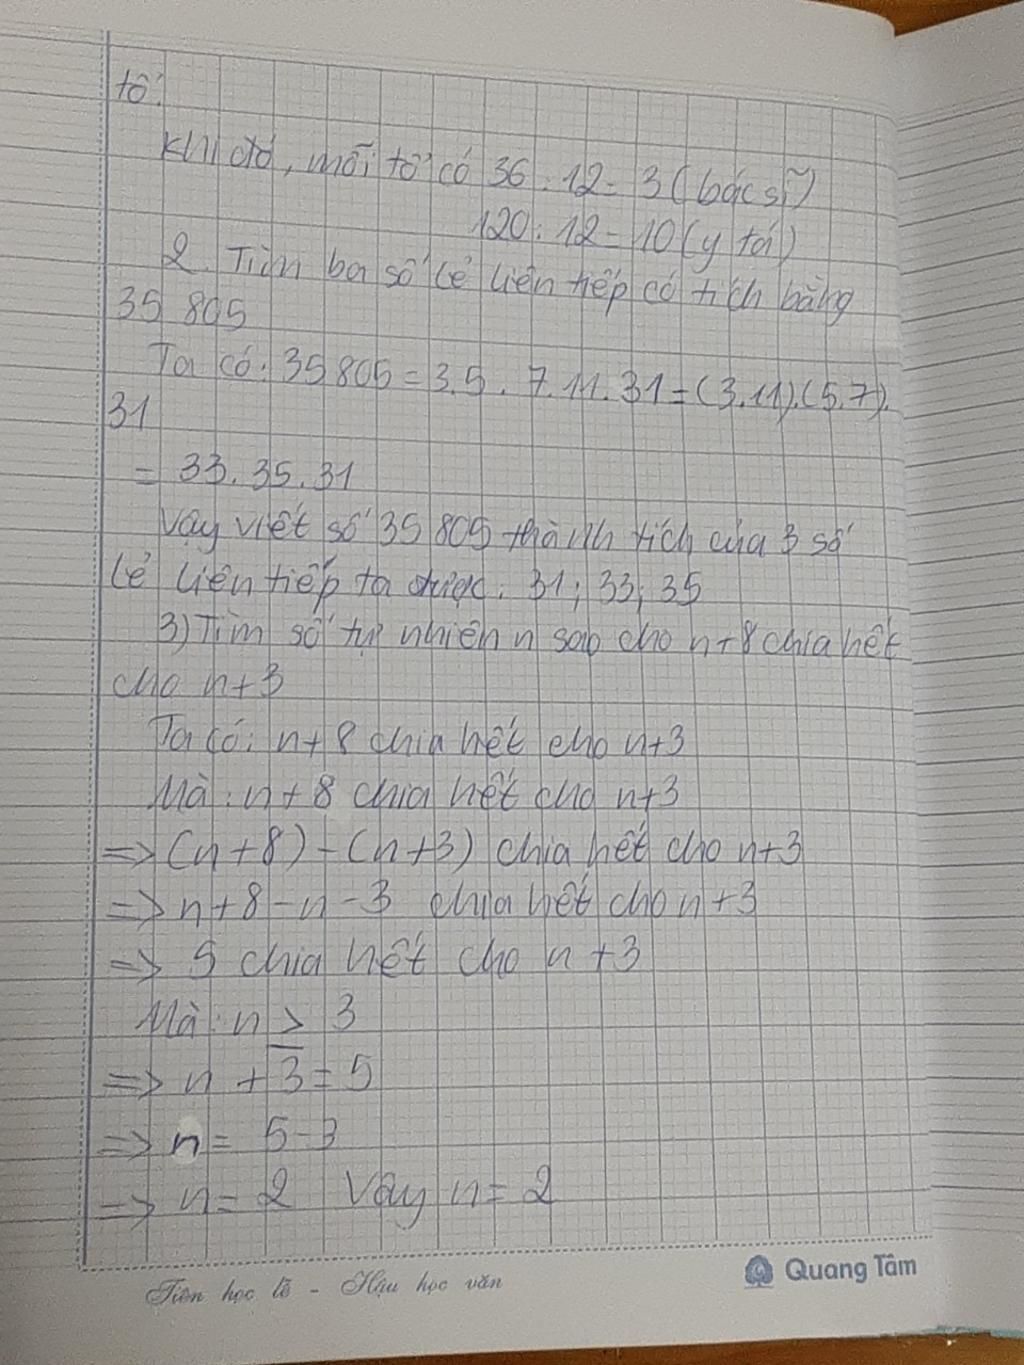 tổ.
Khi đó, mỗi tổ có 36 : 12 = 3 (bác sĩ)
120 : 12 = 10 (y tá)
2. Tìm ba số lẻ liên tiếp có tích bằng
35 805
Ta có: 35 805 = 3.5.7.11.31 = (3.11).(5.7).
31
= 33.35.31
Vậy viết số 35 805 thành tích của 3 số
lẻ liên tiếp ta được: 31; 33; 35
3) Tìm số tự nhiên n sao cho n+8 chia hết
cho n+3
Ta có: n+8 chia hết cho n+3
Mà: n+8 chia hết cho n+3
=> (n+8) - (n+3) chia hết cho n+3
=> n+8-n-3 chia hết cho n+3
=> 5 chia hết cho n+3
Mà: n ≥ 3
=> n + 3 = 5
=> n = 5-3
=> n = 2 Vậy n = 2
Tiên học lễ - Hậu học văn
Quang Tâm